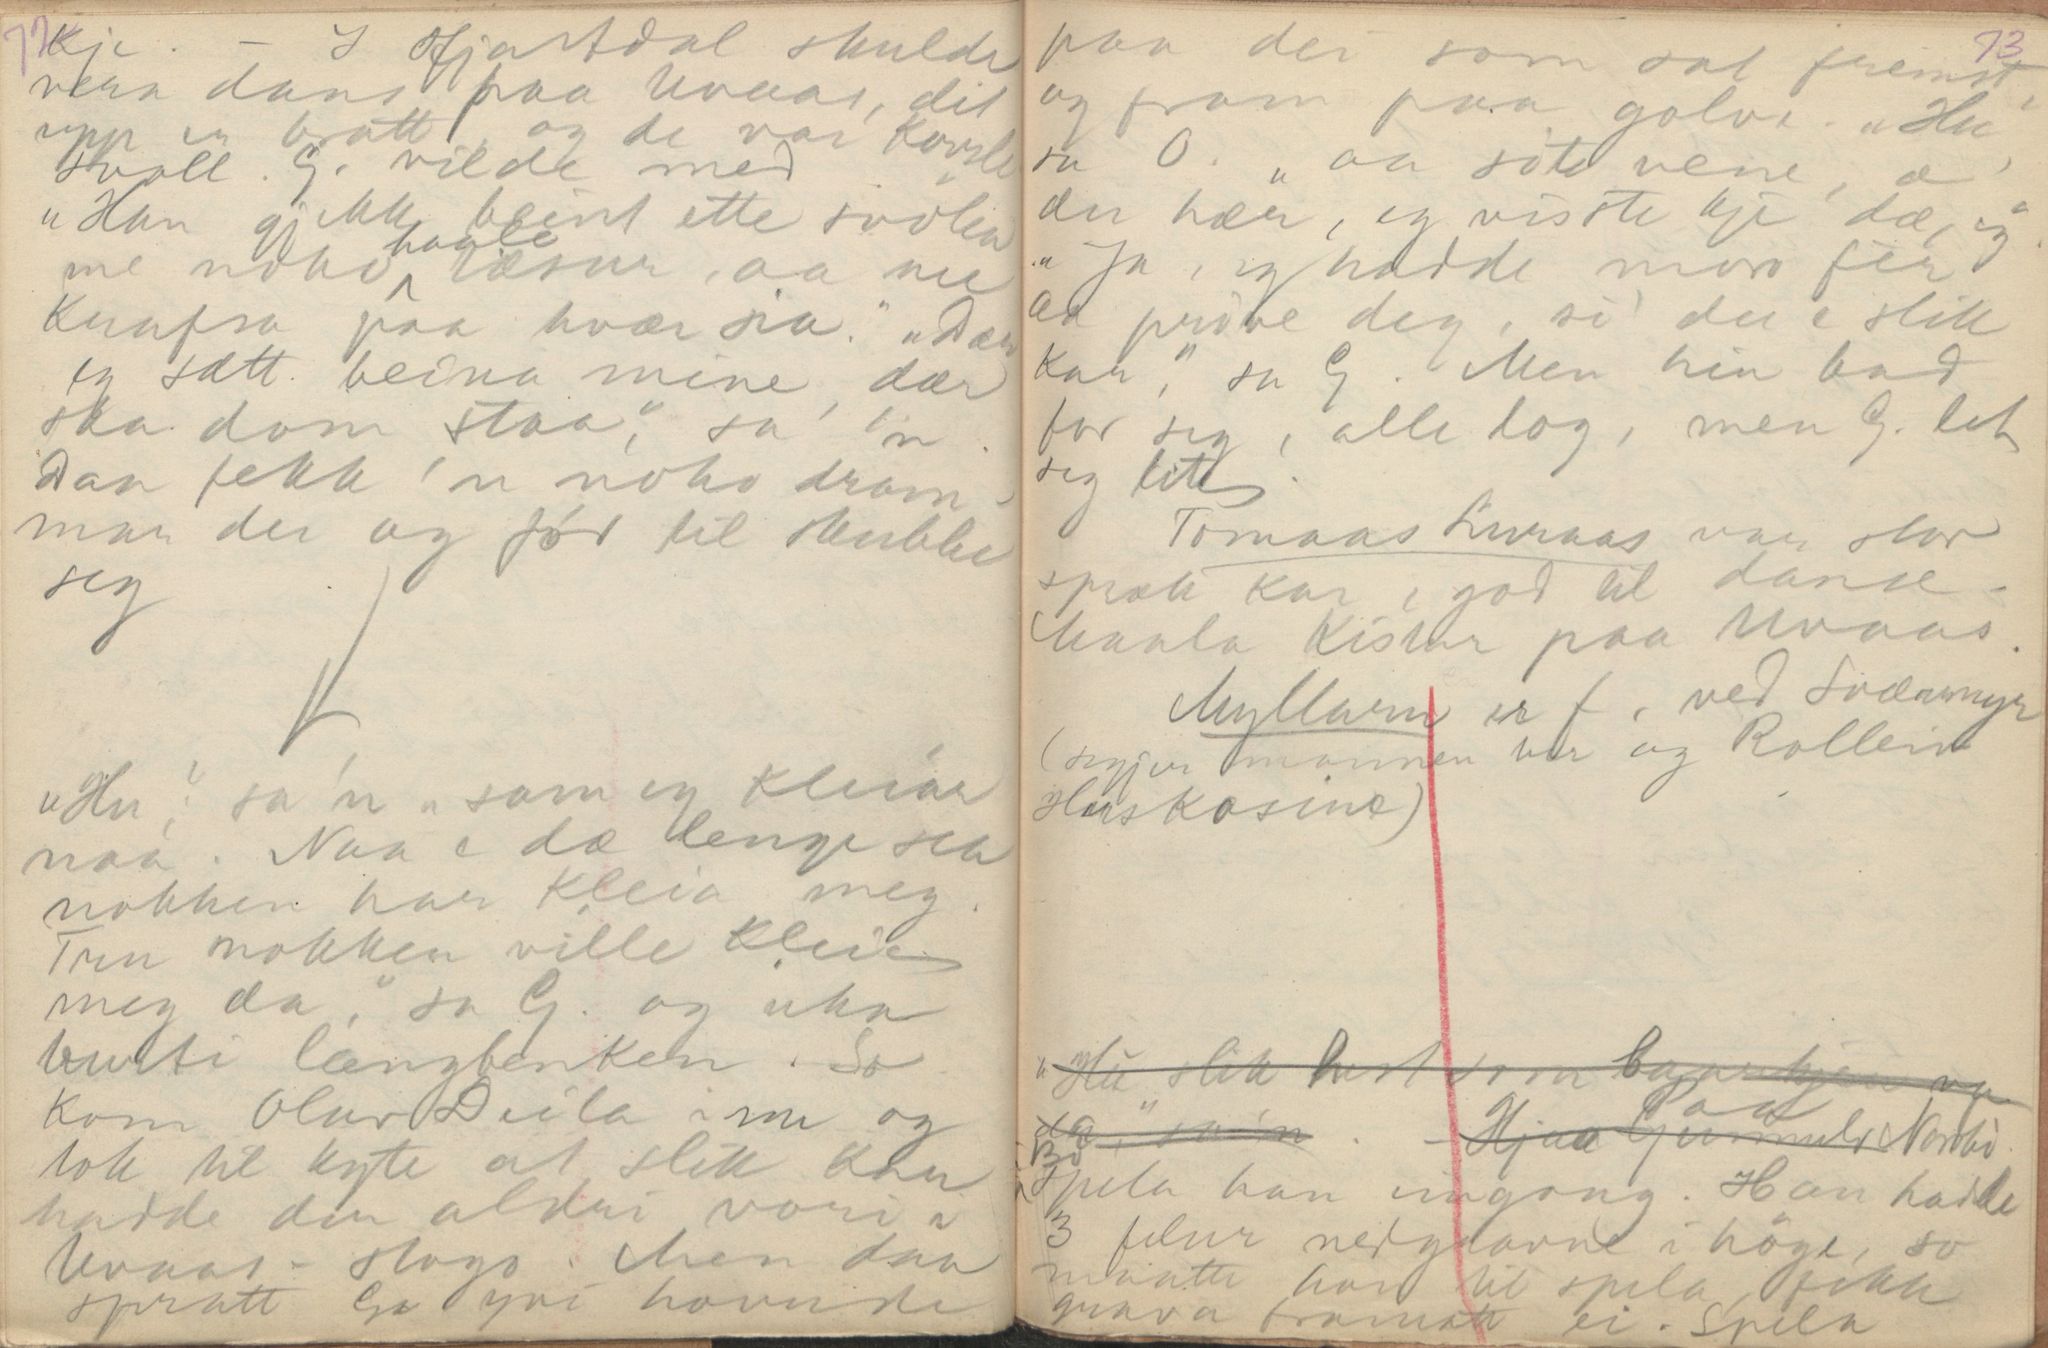 77
kje. – I Hjartdal skulde
vera dans paa Uvaas, dit
upp er bratt, og de var
svall. G. vilde med.
"Han gjekk beint ette svölen
me noko haale læsur, aa nu
knafsa paa hvær sia." "Dær
eg sætt beina mine, dær
ska dom staa," sa 'n.
Daa fekk 'n noko dram-
mar der og for til skubbe
seg
"Hu," sa 'n "som eg kleiar
naa. Naa e dæ lenge sea
nokken har kleia meg.
Tru nokken ville kleie
meg da," sa G. og aka
burti længbenken. So
kom Olav Deila inn og
tok til kyte at slik kar
hadde der aldri vori i
Uvaas-stogo. Men daa
spratt G. yvi hovude
73
paa dei som sat fremst,
og fram paa golve. "Hu,"
sa O. "aa söte vene, æ
du hær, eg visste kje dæ, eg."
"Ja, eg hadde moro fer
aa pröve deg, si du e slik
kar," sa G. Men hin bad
for seg, alle log, men G. let
seg lite.
Tomaas Luraas var stor
spræk kar, god til danse.
Maala kistur paa Uvaas.
Myllarn er f. ved Sværmyr
(segjer mannen her og Rollein
Huskasine)
"Hu slik hest som
da," sa 'n. – Hjaa Gunnuld Nordbö
Paa
Bö
spela han eingong. Han hadde
3 felur nedgravne i höge, so
maatte han til spela, fekk
grava framatt ei. Spela